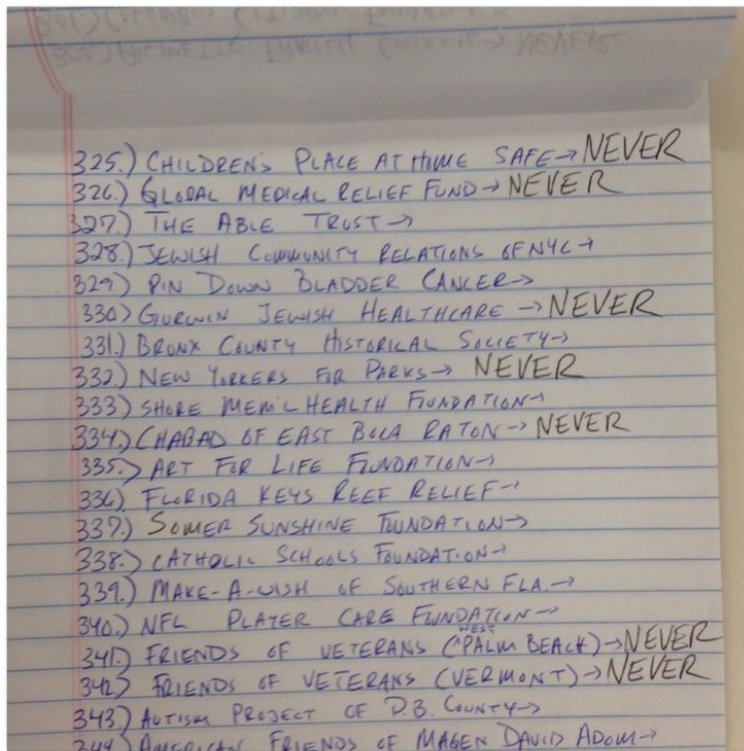 325.) CHILDREN'S PLACE AT HOME SAFE → NEVER
326.) GLOBAL MEDICAL RELIEF FUND → NEVER
327.) THE ABLE TRUST →
328.) JEWISH COMMUNITY RELATIONS OF NYC →
329) PIN DOWN BLADDER CANCER →
330) GURWIN JEWISH HEALTHCARE → NEVER
331.) BRONX COUNTY HISTORICAL SOCIETY →
332.) NEW YORKERS FOR PARKS → NEVER
333) SHORE MEM'L HEALTH FOUNDATION →
334.) CHABAD OF EAST BOCA RATON → NEVER
335.) ART FOR LIFE FOUNDATION →
336) FLORIDA KEYS REEF RELIEF →
337) SOMER SUNSHINE FOUNDATION →
338.) CATHOLIC SCHOOLS FOUNDATION →
339.) MAKE-A-WISH OF SOUTHERN FLA. →
340.) NFL PLAYER CARE FUNDATION →
341.) FRIENDS OF VETERANS (^WEST PALM BEACH) → NEVER
342) FRIENDS OF VETERANS (VERMONT) → NEVER
343.) AUTISM PROJECT OF P.B. COUNTY →
344) AMERICAN FRIENDS OF MAGEN DAVID ADOM →